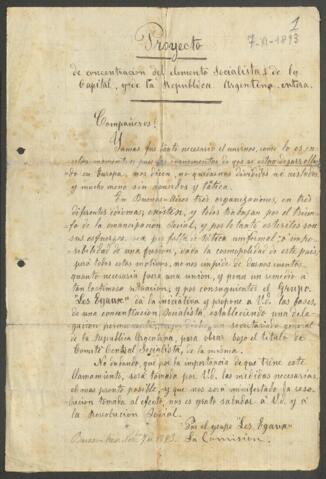 1
7-XI-1893
Proyecto
de concentración del elemento Socialista de la
Capital, y de la República Argentina entera.
Compañeros!
Jamas fué tanto necesario el unirnos, como lo es en
estos momentos, pues los movimientos de que se estan desarrollan
do en Europa, nos dicen, no quedarnos divididos ni aislados
y mucho menos sin acuerdo y tática.
En Buenos Aires tres organizaciones, en tres
diferentes idiomas existen, y todos trabajan por el triun
fo de la emancipación Social, y por lo tanto esteriles son
sus esfuerzos, por falta de tática uniforme, la impo
sibilidad de una fusion, dado la cosmopolidad de este país,
pero todos estos motivos, no nos impide de darnos cuenta,
cuanto necesaria fuera una unión, y poner un remedio a
tan lastimosa situación; y por consiguiente el Grupo
"Les Egaux" dá la iniciativa y propone a Vd. las bases,
de una concentración Socialista, estableciendo una dele
gacion permanente, un secretariado general
de la República Argentina, para obrar bajo el titulo de
Comité Central Socialista, de la misma.
No dudando, que por la importancia de que tiene este
llamamiento, será tomado por Vd. las medidas necesarias,
el mas pronto posible, y que nos será manifestada la reso
lucion tomada al efecto, nos es grato saludar á Vd. y á
la Revolucion Social.
Por el grupo "Les Egaux"
Buenos Aires Nov. 7 de 1893. La Comisión.